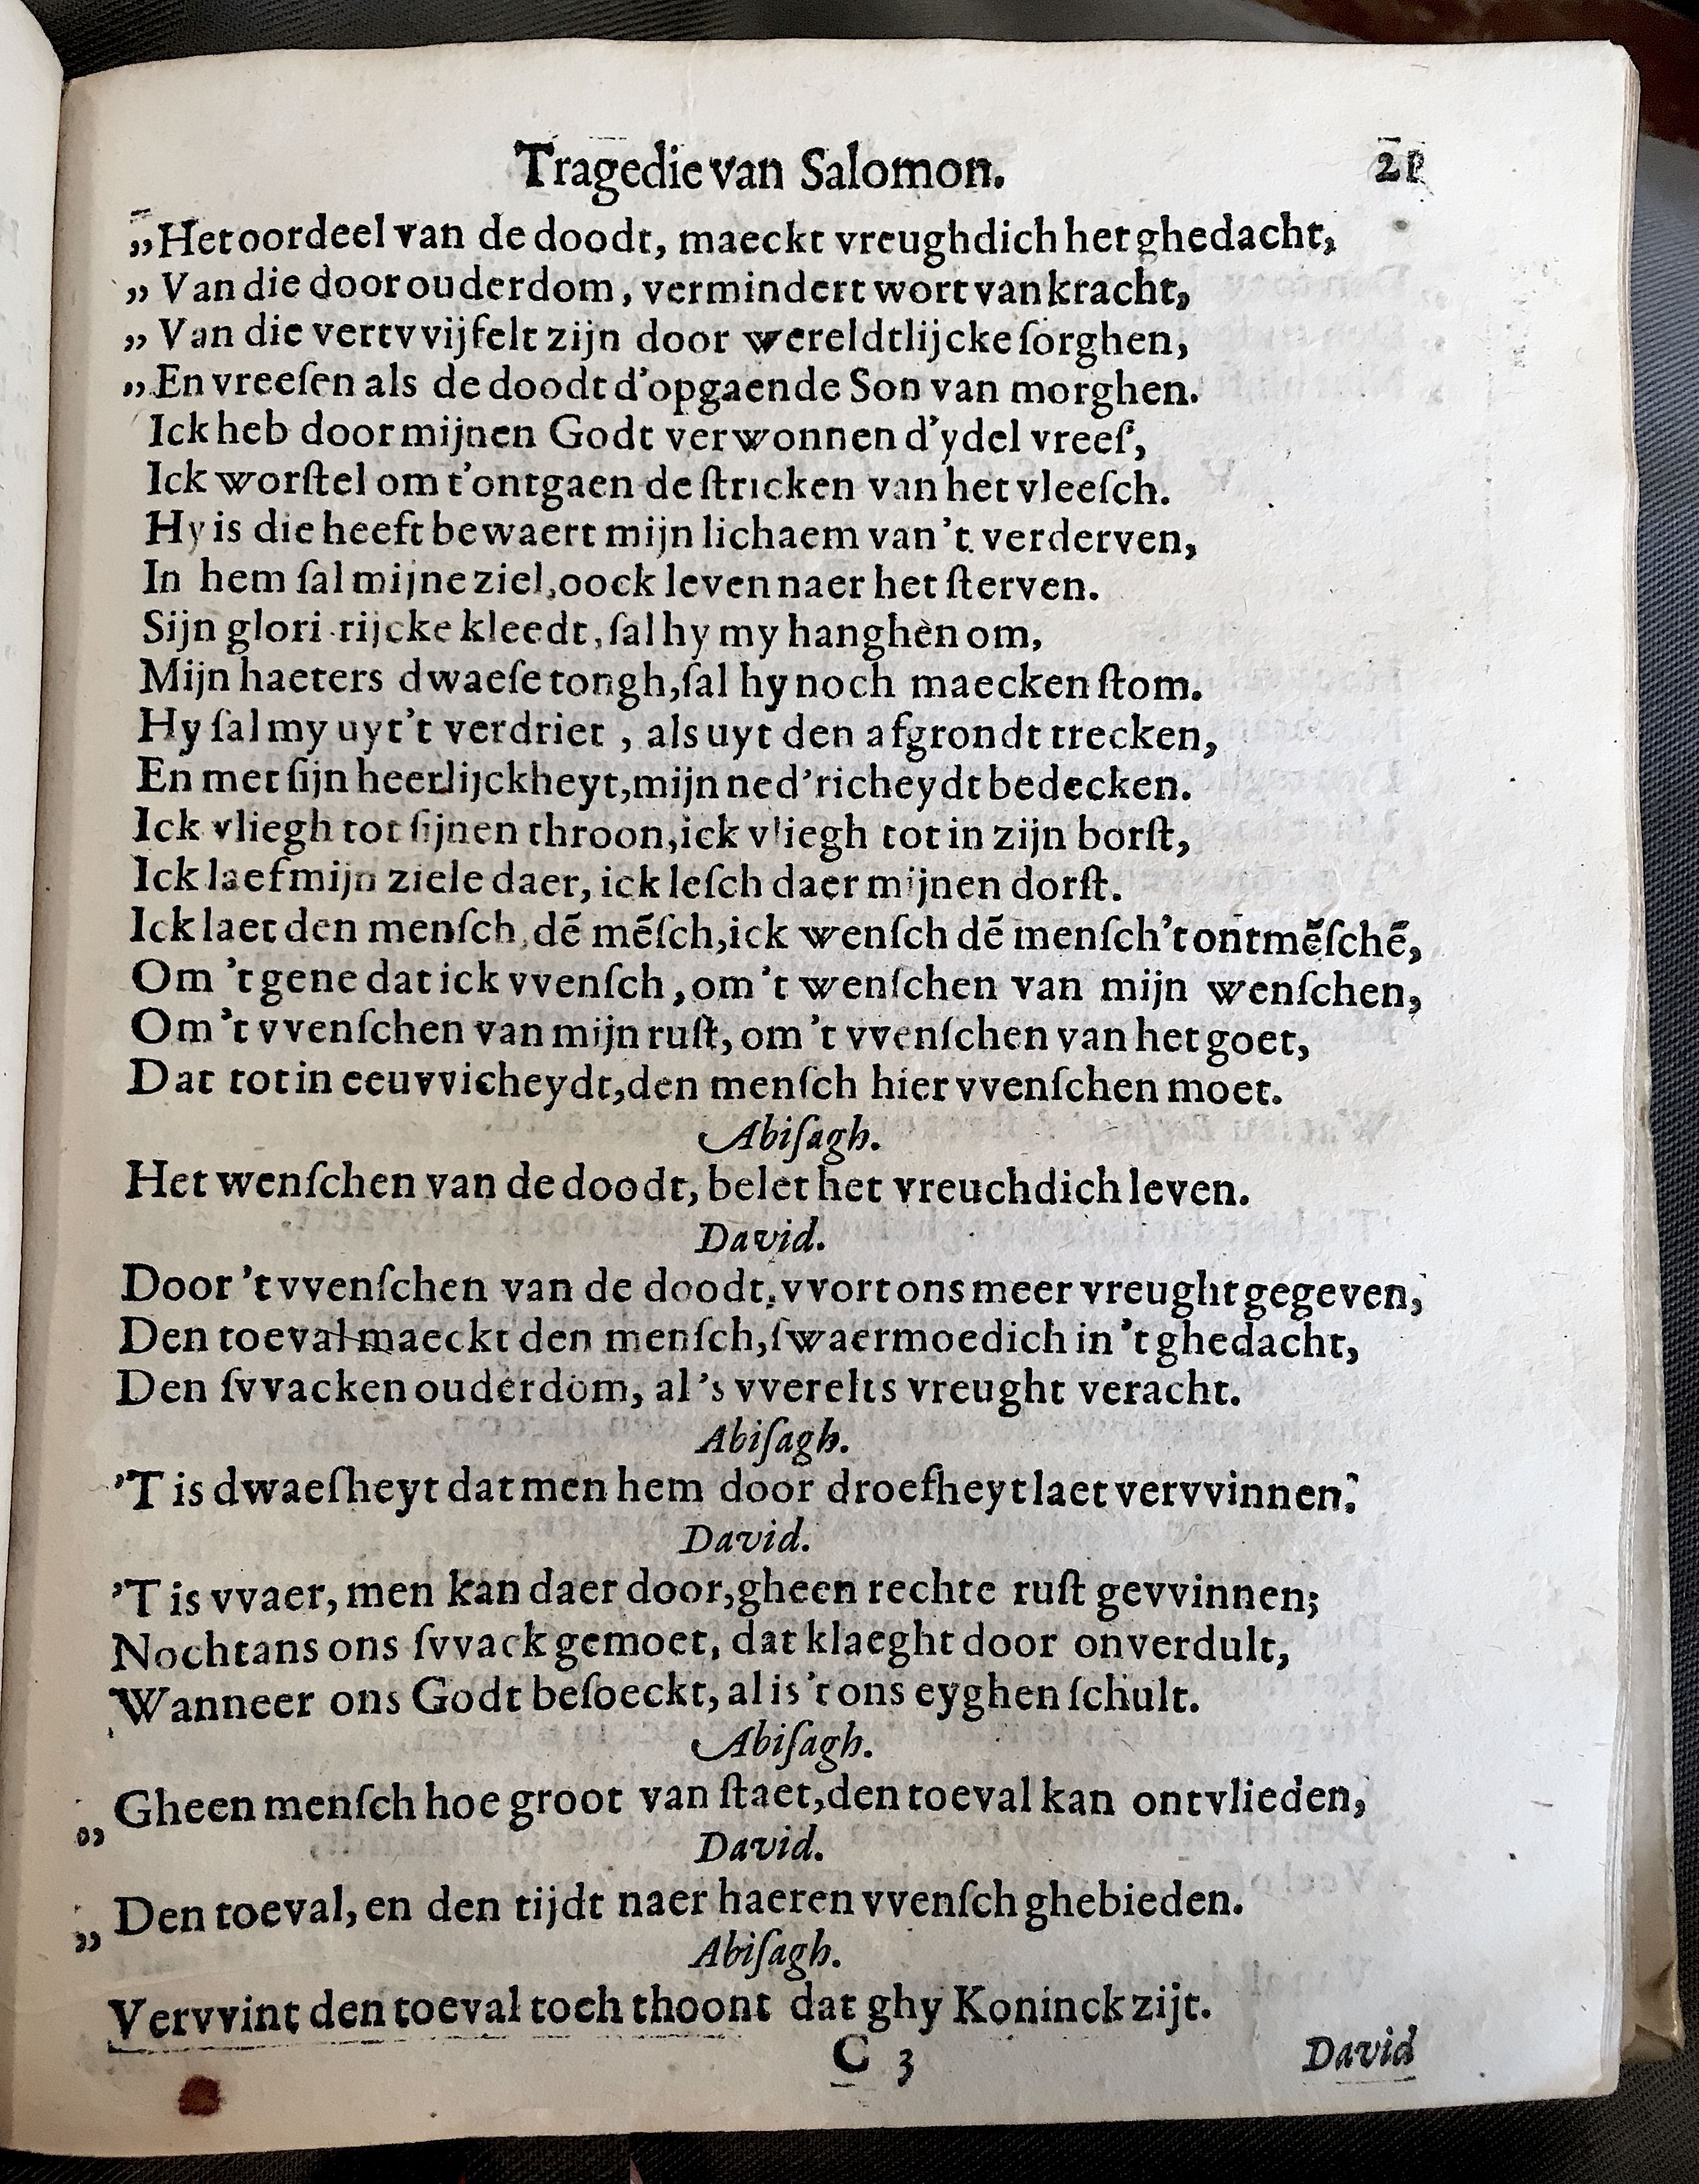 Tragedie van Salomon. 21
„Het oordeel van de doodt, maeckt vreughdich het ghedacht,
„ Van die door ouderdom, vermindert wort van kracht,
„ Van die vertvvijfelt zijn door wereldtlijcke ſorghen,
„ En vreeſen als de doodt d'opgaende Son van morghen.
Ick heb door mijnen Godt verwonnen d'ydel vreeſ,
Ick worſtel om t'ontgaen de ſtricken van het vleeſch.
Hy is die heeft bewaert mijn lichaem van 't verderven,
In hem ſal mijne ziel, oock leven naer het ſterven.
Sijn glori-rijcke kleedt, ſal hy my hanghen om,
Mijn haeters dwaeſe tongh, ſal hy noch maecken ſtom.
Hy ſal my uyt 't verdriet, als uyt den afgrondt trecken,
En met ſijn heerlijckheyt, mijn ned'richeydt bedecken.
Ick vliegh tot ſijnen throon, ick vliegh tot in zijn borſt,
Ick laef mijn ziele daer, ick leſch daer mijnen dorſt.
Ick laet den menſch, dē mēſch, ick wenſch dē menſch 't ontmēſchē,
Om 't gene dat ick vvenſch, om 't wenſchen van mijn wenſchen,
Om 't vvenſchen van mijn ruſt, om 't vvenſchen van het goet,
Dat tot in eeuvvicheydt, den menſch hier vvenſchen moet.
Abiſagh.
Het wenſchen van de doodt, belet het vreuchdich leven.
David.
Door 't vvenſchen van de doodt, vvort ons meer vreught gegeven,
Den toeval maeckt den menſch, ſwaermoedich in 't ghedacht,
Den ſvvacken ouderdom, al 's vverelts vreught veracht.
Abiſagh.
'T is dwaeſheyt dat men hem door droefheyt laet vervvinnen.
David.
'T is vvaer, men kan daer door, gheen rechte ruſt gevvinnen;
Nochtans ons ſvvack gemoet, dat klaeght door onverdult,
Wanneer ons Godt beſoeckt, al is 't ons eyghen ſchult.
Abiſagh.
„ Gheen menſch hoe groot van ſtaet, den toeval kan ontvlieden,
David.
„ Den toeval, en den tijdt naer haeren vvenſch ghebieden.
Abiſagh.
Vervvint den toeval toch thoont dat ghy Koninck zijt.
C 3 David